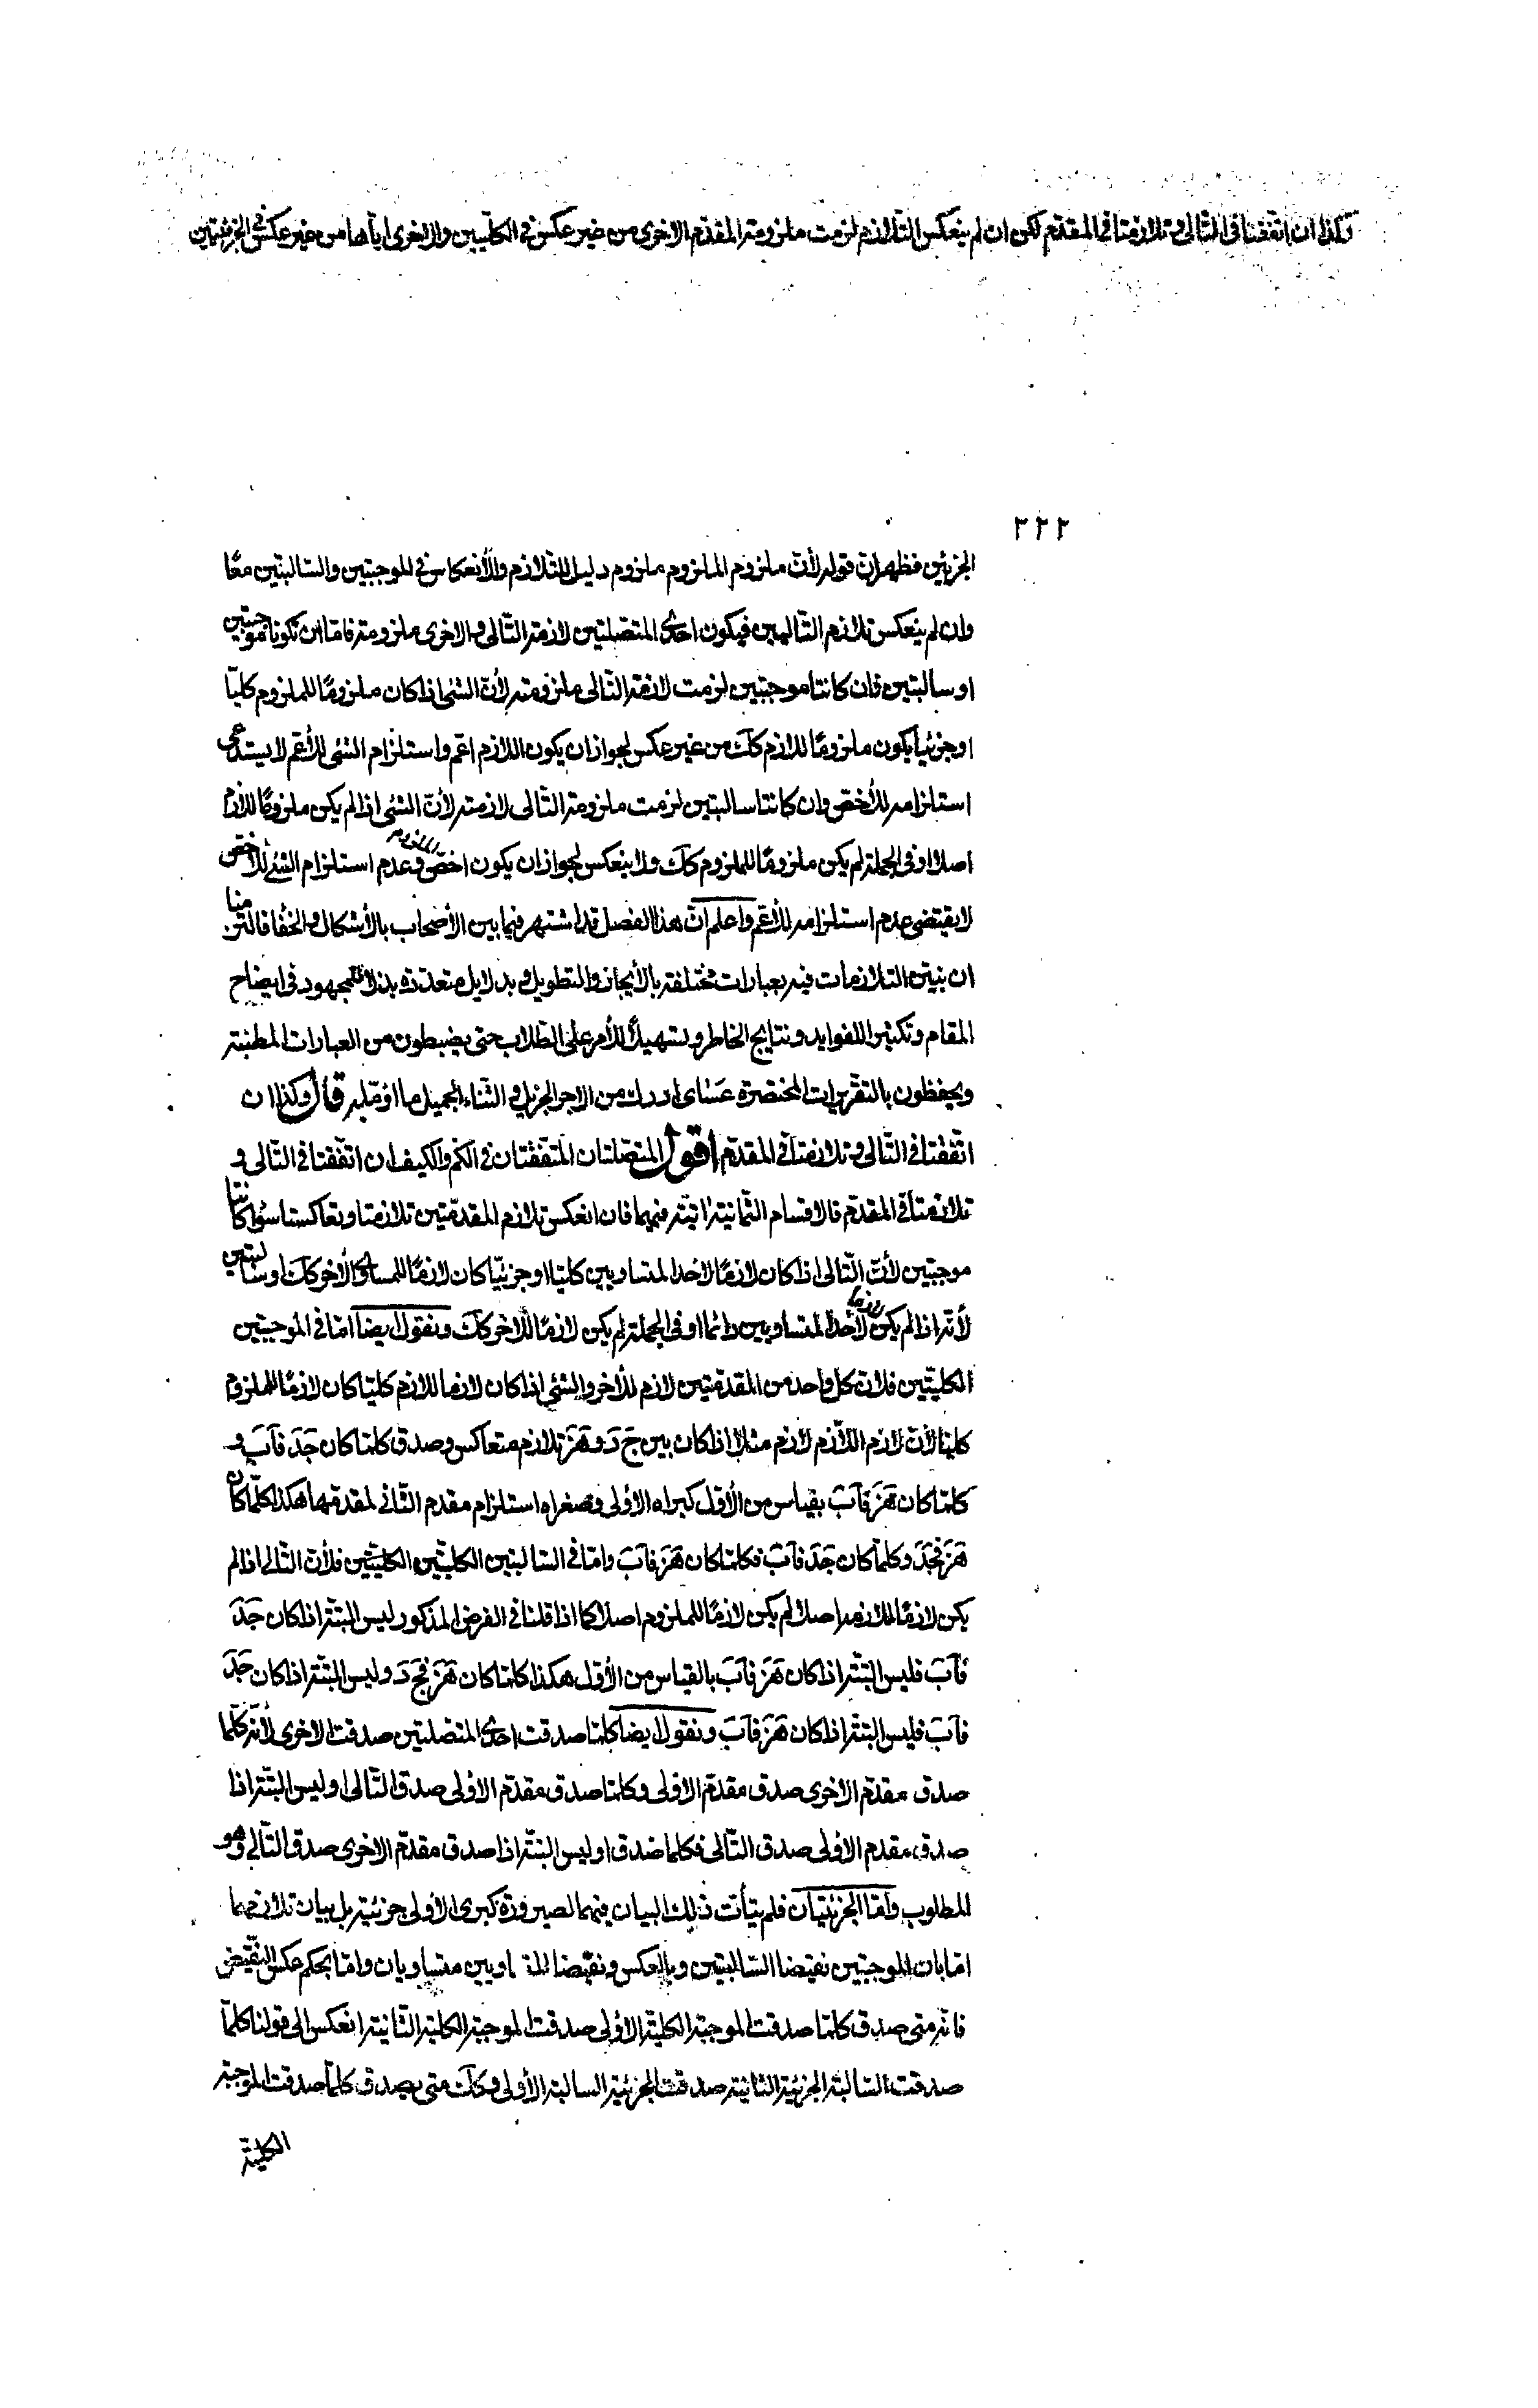 وكذا ان اتفقتا فى التالى وتلازمتا فى المقدم لكن ان لم ينعكس التلازم لزمت ملزومة المقدم الاخرى من غير عكس فى الكليتين والاخرى اياها من غير عكس فى الجزئيتين
٢٢٢
الجزئين فظهر ان قوله لأن ملزوم الملزوم ملزوم دليل للتلازم والأنعكاس فى الموجبتين والسالبتين معًا
وان لم ينعكس تلازم التاليين فيكون احدى المتصلتين لازمة التالى والاخرى ملزومته فاما ان تكونا موجبتين
او سالبتين فان كانتا موجبتين لزمت لازمة التالى ملزومته لأن الشئ اذا كان ملزومًا للملزوم كليّا
او جزئيا يكون ملزومًا للازم كك من غير عكس لجواز ان يكون اللازم اعم واستلزام الشئ للأعم لا يستدعى
استلزامه للأخص وان كانتا سالبتين لزمت ملزومة التالى لازمته لأن الشئ اذا لم يكن ملزومًا للازم
اصلا او فى الجملة لم يكن ملزومًا للملزوم كك ولا ينعكس لجواز ان يكون الملزوم اخص وعدم استلزام الشئ للأخص
لا يقتضى عدم استلزامه للأعم واعلم ان هذا الفصل قد اشتهر فيما بين الأصحاب بالأشكال والخفا فالتزمنا
ان نبين التلازمات فيه بعبارات مختلفة بالأيجاز والتطويل وبدلايل متعددة بذلا للمجهود فى ايضاح
المقام وتكثيرا للفوايد ونتايج الخاطر وتسهيلًا للأمر على الطلاب حتى يضبطون من العبارات المطنبة
ويحفظون بالتقريرات المختصرة عساى ادرك من الاجر الجزيل والثناء الجميل ما اؤمله قال وكذا ان
اتفقتا فى التالى وتلازمتا فى المقدم اقول المتصلتان المتفقتان فى الكم والكيف ان اتفقتا فى التالى و
تلازمتا فى المقدم فالاقسام الثمانية اتية فيهما فان انعكس تلازم المقدمتين تلازمتا وتعاكستا سواء كانتا
موجبتين لأن التالى اذا كان لازمًا لاحد المتساويين كليا او جزئيّا كان لازمًا للمساوى الأخر كك او سالبتين
لأنه اذا لم يكن لازما لأحد المتساويين دائما او فى الجملة لم يكن لازمًا للاخر كك ونقول ايضا اما فى الموجبتين
الكليتين فلان كل واحد من المقدمتين لازم للأخر والشئ اذا كان لازما للازم كليا كان لازمًا للملزوم
كليا لأن لازم اللازم لازم مثلا اذا كان بين ج د و ه ز تلازم متعاكس وصدق كلما كان ج د فا ب و
كلما كان ه ز فا ب بقياس من الأول كبراه الأولى وصغراه استلزام مقدم الثانى لمقدمها هكذا كلما كان
ه ز فج د وكلما كان ج د فا ب فكلما كان ه ز فا ب واما فى السالبتين الكليتين الكليتين فلأن التالى اذا لم
يكن لازمًا للازم اصلا لم يكن لازمًا للملزوم اصلا كما اذا قلنا فى الفرض المذكور ليس البتة اذا كان ج د
فا ب فليس البتة اذا كان ه ز فا ب بالقياس من الأول هكذا كلما كان ه ز فج د وليس البتة اذا كان ج د
فا ب فليس البتة اذا كان ه ز فا ب ونقول ايضا كلما صدقت احدى المتصلتين صدقت الاخرى لأنه كلما
صدق مقدم الاخرى صدق مقدم الاولى وكلما صدق مقدم الاولى صدق التالى او ليس البتة اذا
صدق مقدم الاولى صدق التالى فكلما صدق او ليس البتة اذا صدق مقدم الاخرى صدق التالى وهو
المطلوب واما الجزئيتان فلم يتأت ذلك البيان فيهما لصيرورة كبرى الأولى جزئية بل بيان تلازمهما
اما بان الموجبتين نقيضا السالبتين وبالعكس ونقيضا المتساويين متساويان واما بحكم عكس النقيض
فانه متى صدق كلما صدقت الموجبة الكلية الاولى صدقت الموجبة الكلية الثانية انعكس الى قولنا كلما
صدقت السالبة الجزئية الثانية صدقت الجزئية السالبة الأولى وكك متى يصدق كلما صدقت الموجبة
الكلية